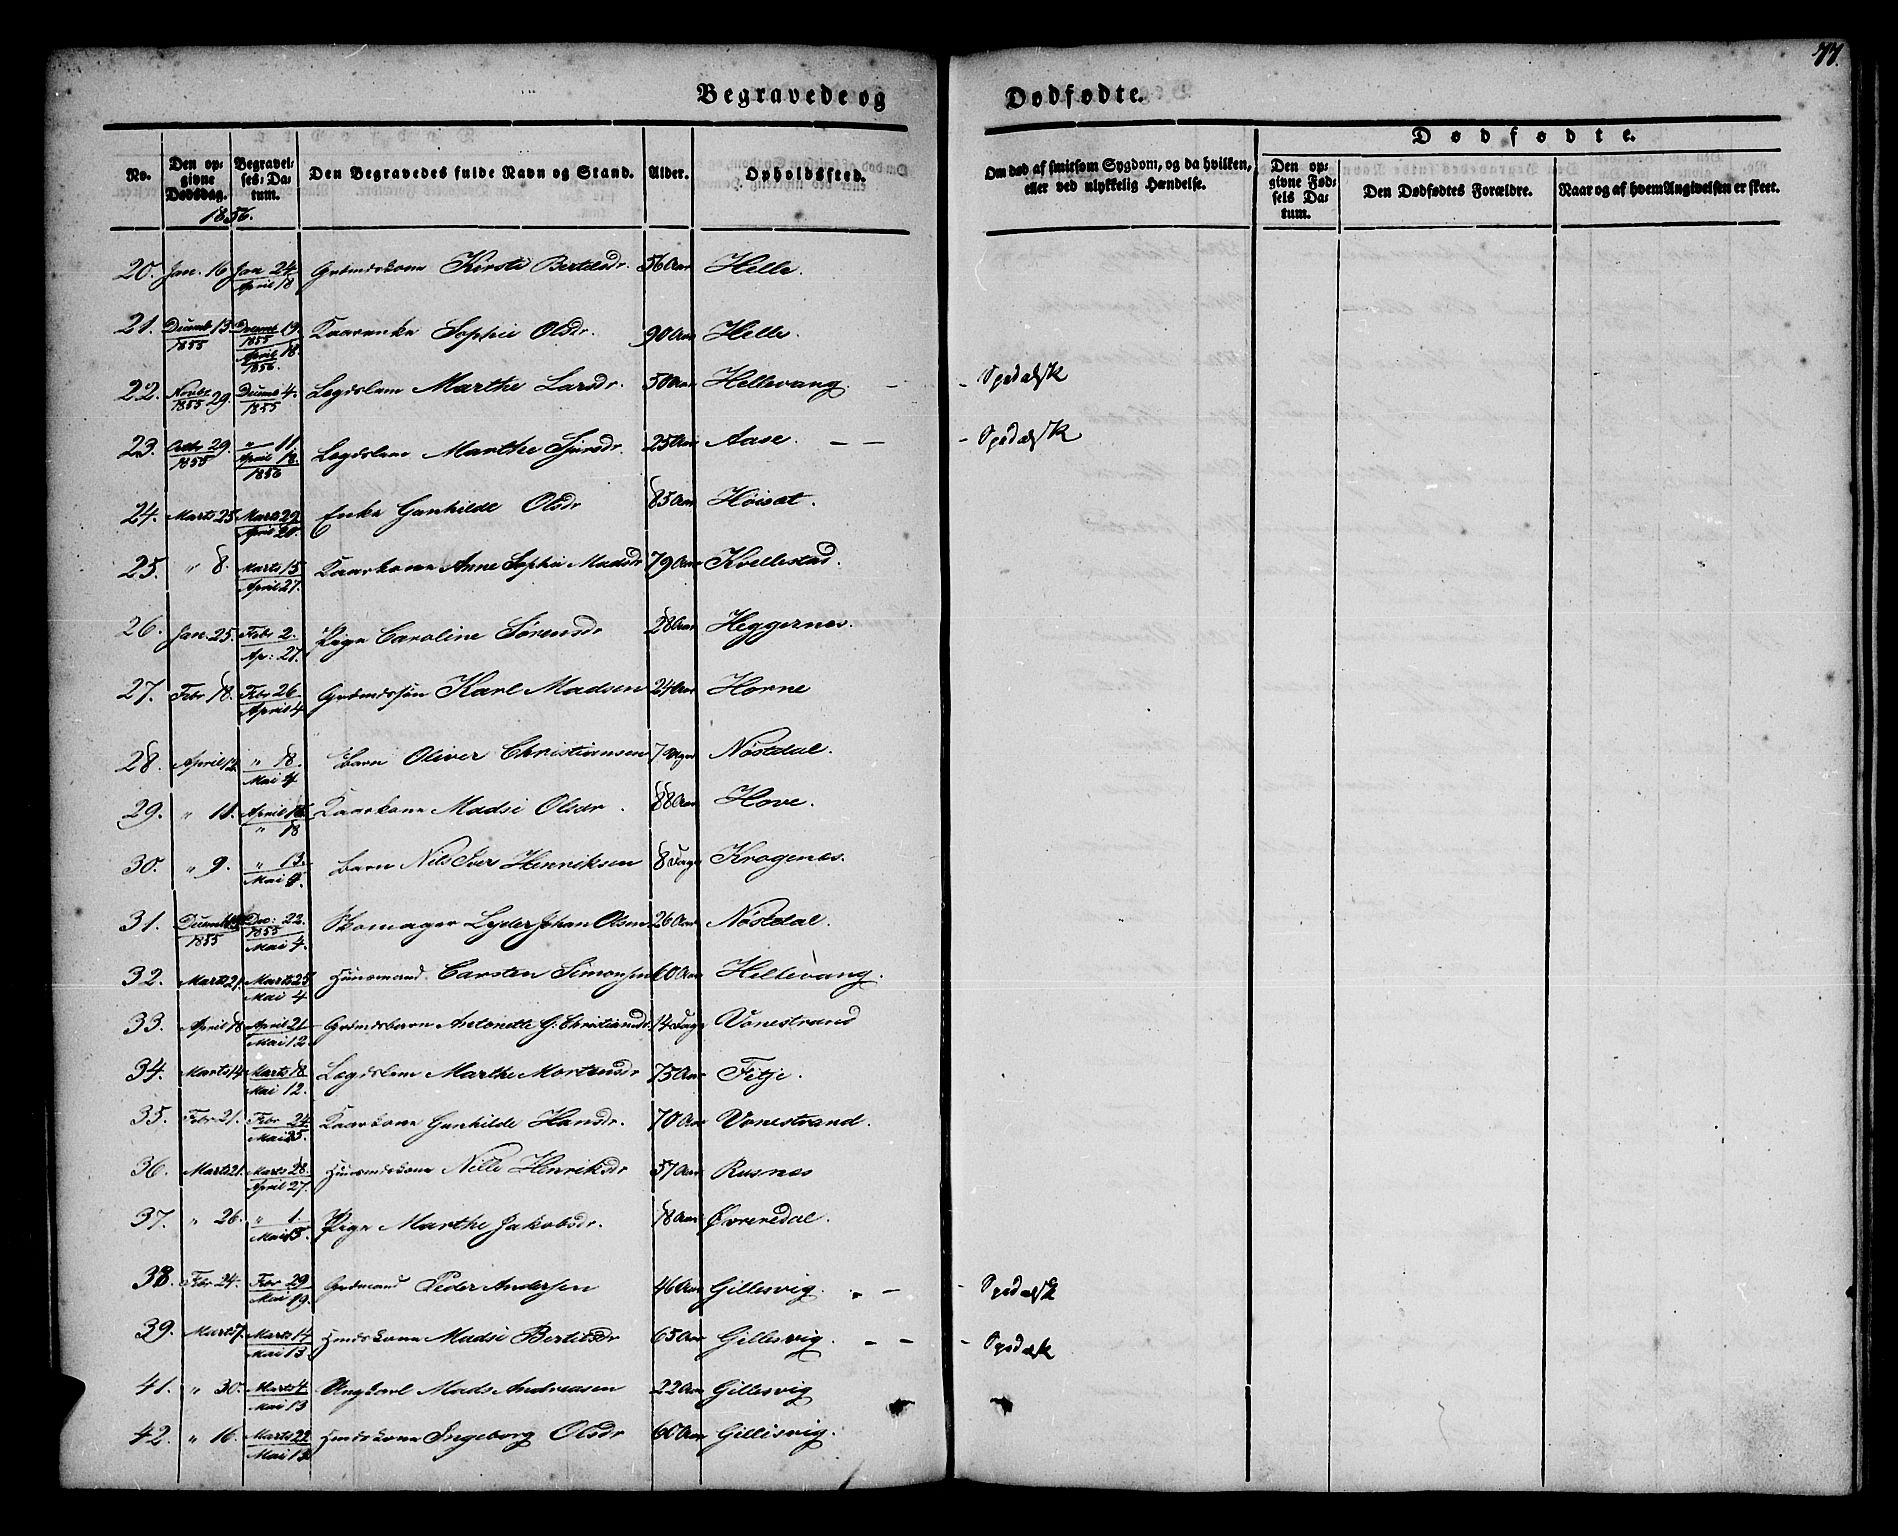 77.
Begravede og Dødfødte.
No. Den opgivne Dødsdag. Begravelses-Datum. Den Begravedes fulde Navn og Stand. Alder. Opholdssted. Om død af smitsom Sygdom, og da hvilken, eller ved ulykkelig Hændelse.
Dødfødte.
Den opgivne Fødsels Datum. Den Dødfødtes Forældre. Naar og af hvem Angivelsen er skeet.
1856.
20. Jan. 16 Jan 24 April 18 Grdmdskone Kirsti Bertelsdr. 56 Aar Helle.
21. Decemb 13 1855 Decemb 19. 1855 April 18. 1856. Kaarenke Sophie Olsdr. 90 Aar Helle.
22. Novbr 29 1855 Decemb 4. 1855 Lægdslem Marthe Larsdr. 50 Aar Hellevang. - - Spedalsk
23. Octbr 29. 1855 " 11. April 18. 1856 Lægdslem Marthe Sjursdr. 25 Aar Aase. - - - Spedalsk
24. Marts 25 Marts 29 April 20. Enke Gunhilde Olsdr 83 Aar Høisæt.
25. " 8. Marts 15 April 27. Kaarkone Anne Sophie Madsdr 79 Aar Kvellestad.
26. Jan. 25. Febr 2. Ap: 27. Pige Caroline Sørensdr 28 Aar Heggernes.
27. Febr 18. Febr 26 April 4 Grdmdssøn Karl Madsen 24 Aar Horne
28. April 12. " 18. Mai 4 Barn Oliver Christiansen 7 Uger Nøstdal.
29. " 11. April 16. " 18 Kaarkone Madsi Olsdr. 88 Aar Hove.
30. " 9. " 13. Mai 4. Barn Nils Iver Henriksen 8 Dage Krogenes.
31. Decemb 1855 Dec: 22. 1855 Mai 4. Skomager Lyder Johan Olsen 26 Aar Nøstdal
32. Marts 21. Marts 25 Mai 4 Huusmand. Carsten Simonsen 60 Aar Hellevang.
33. April 18 April 21 Mai 12. Grdmdsbarn Antonette G. Christiansdr. 14 Dage Vonestrand
34. Marts 14 Marts 18 Mai 12. Lægdslem Marthe Mortensdr 73 Aar Fetje.
35. Febr 21. Febr 24 Mai 25. Kaarkone Gunhilde Hansdr. 70 Aar Vonestrand.
36. Marts 21. Marts 28. April 27. Huusmdskone Nille Henriksdr 57 Aar Rusnes
37. " 26. " 1. Mai 13. Pige Marthe Jakobsdr. 18 Aar Øvreredal.
38. Febr 24. Febr 29 Mai 19. Grdmand Peder Andersen 46 Aar Gillesvig. - - - Spedalsk
39. Marts 7. Marts 14 Mai 13. Hmdskone Madsi Bertelsdr 65 Aar Gillesvig - - - Spedalsk
41. " 30. Marts 4 Mai 13 Ungkarl Mads Andreasen 22 Aar Gillesvig
42. " 16. Marts 22 Mai 13. Hmdskone Ingeborg Olsdr 66 Aar Gillisvig.